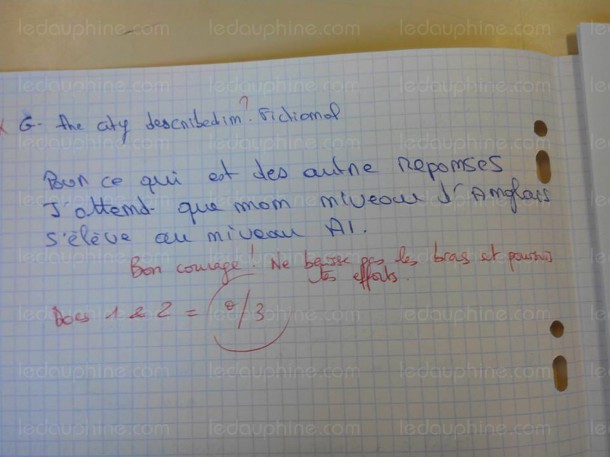 G- the city described in ? Fictional
Pour ce qui est des autre reponses
J'attend que mon niveau d'Anglais
s'élève au niveau A1.
Bon courage ! Ne baisse pas les bras et poursuis
tes efforts.
Docs 1 & 2 = /3
ledauphine.com ledauphine.com ledauphine.com ledauphine.com